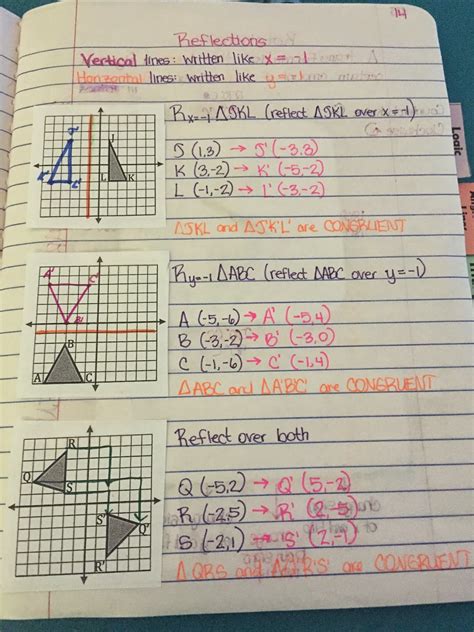 14
Reflections
Vertical lines: written like x = -1
Horizontal lines: written like y = -1
Rx=-1 ΔJKL (reflect ΔJKL over x = -1)
J (1,3) → J' (-3,3)
K (3,-2) → K' (-5,-2)
L (-1,-2) → L' (-3,-2)
ΔJKL and ΔJ'K'L' are CONGRUENT
J' J
K' L' L K
Ry=-1 ΔABC (reflect ΔABC over y=-1)
A (-5,-6) → A' (-5,4)
B (-3,-2) → B' (-3,0)
C (-1,-6) → C' (-1,4)
ΔABC and ΔA'B'C' are CONGRUENT
A' C'
B'
B
A C
Reflect over both
Q (-5,2) → Q' (5,-2)
R (-2,5) → R' (2,-5)
S (-2,1) → S' (2,-1)
ΔQRS and ΔQ'R'S' are CONGRUENT
R
Q S
S' Q'
R'
Logic